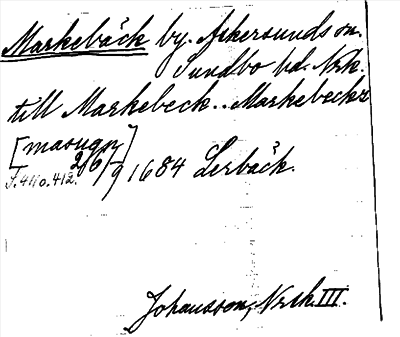 Markebäck by. Askersunds sn.
Sundbo hd. Nrk.
till Markebeck.. Markebeckz
[masugn]
26/9 1684 Lerbäck.
S. 411 o. 412.
Johansson, Nrk. III.